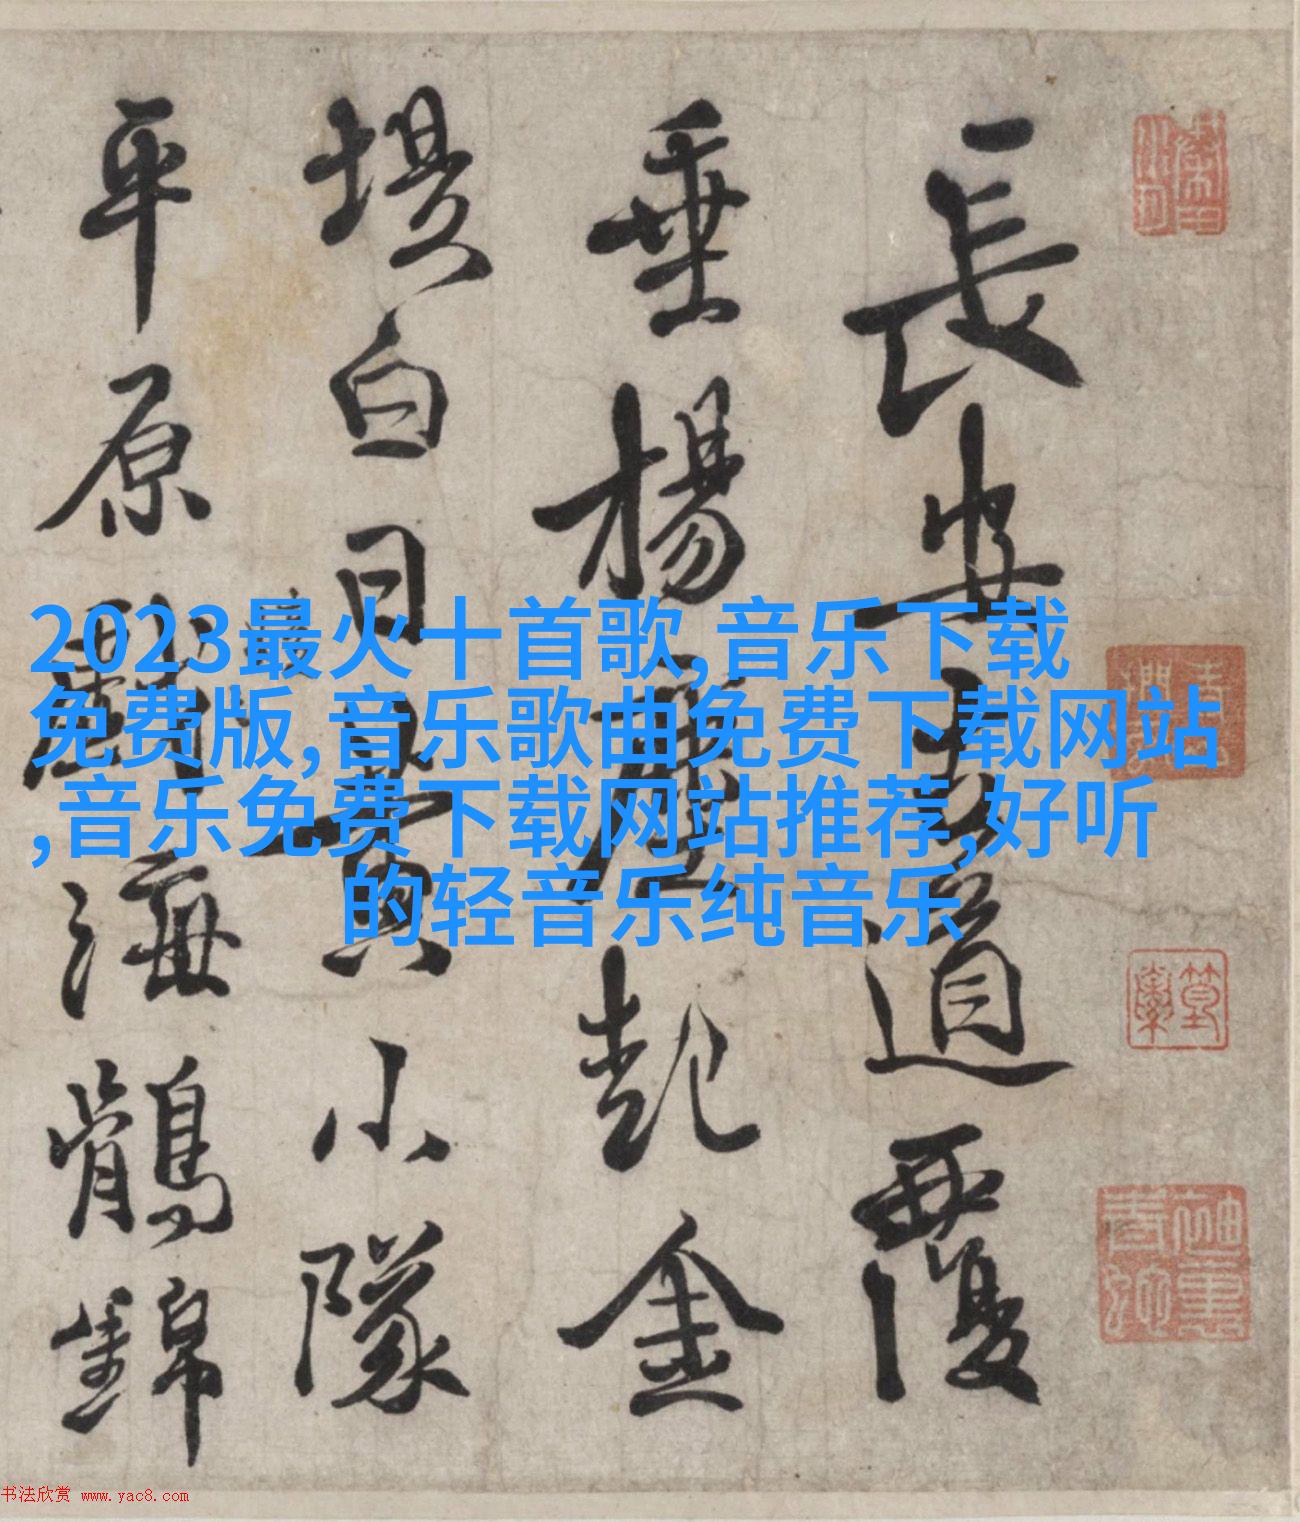 長安道覆
垂楊塵起金
堤白日黃小隊
平原海鶻錦
2023最火十首歌,音乐下载
免费版,音乐歌曲免费下载网站
,音乐免费下载网站推荐,好听
的轻音乐纯音乐
书法欣赏 www.yac8.com